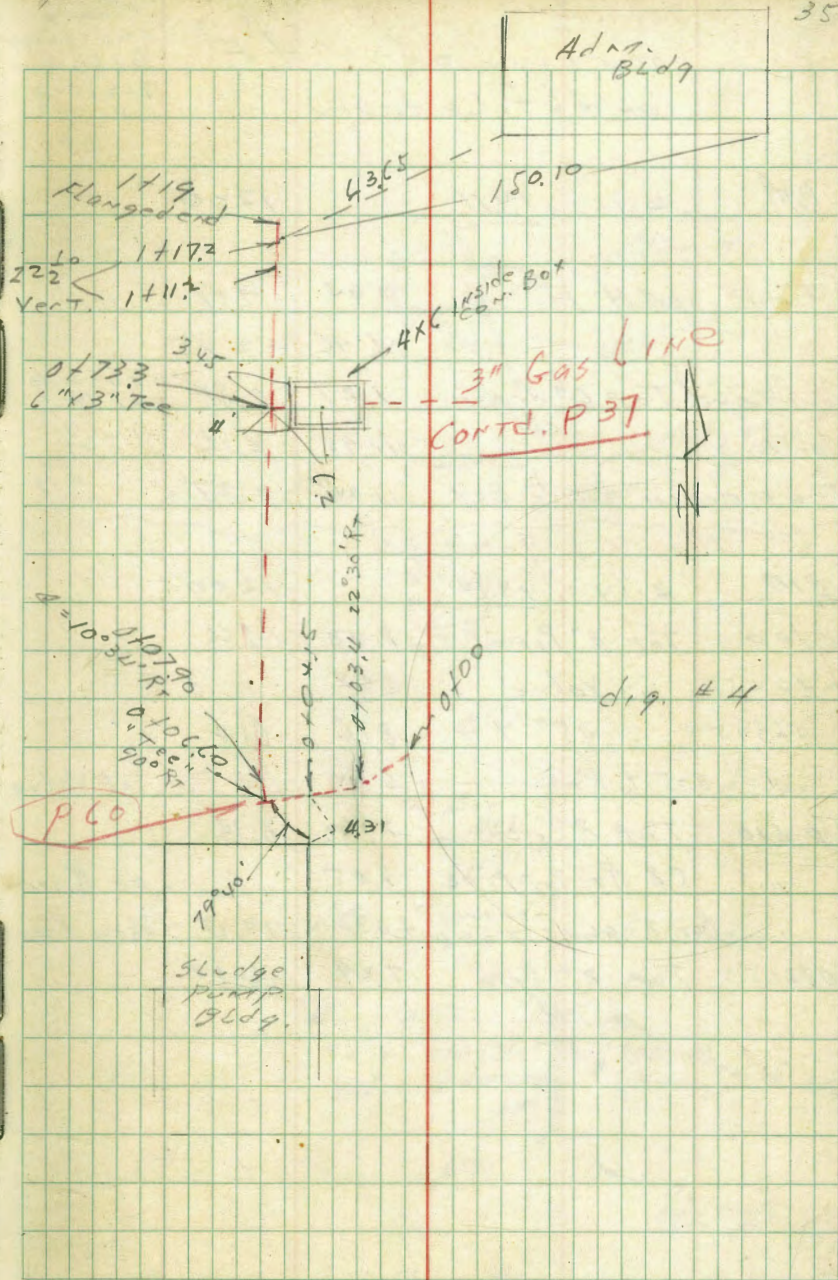 35
Adm.
BLdg
1+19
Flanged end
63.65
150.10
1+17.2
22 1/2°
Vert.
1+11.2
4x6 inside
con. Box
3.45
0+73.3
6"x3" Tee
4'
3" Gas LINE
Contd. P 37
N
22°30' Rt
0+03.4
0+04.15
0+00
0+07.90
10°34' Rt
0+06.60
"Tee"
90° Rt
dig. #4
P 60
4.31
79°40'
Sludge
Pump
BLdg.